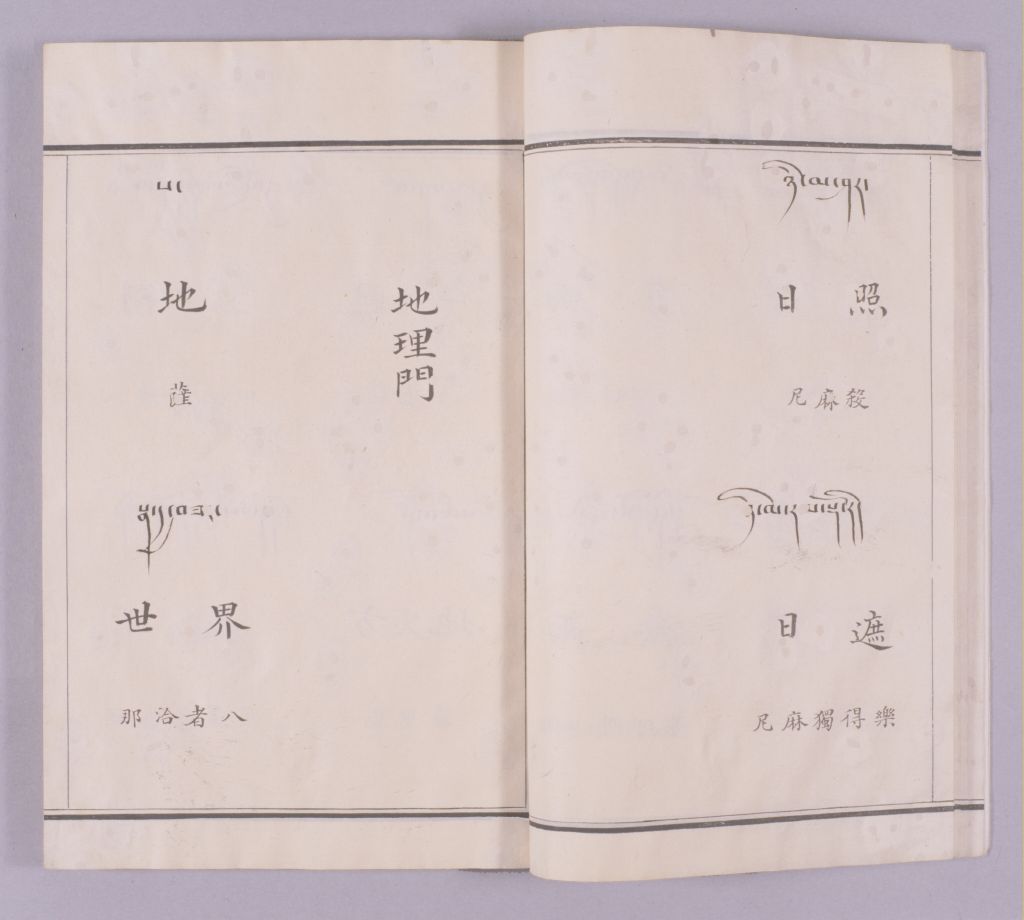 日照
尼麻殺
日遮
尼麻獨得樂
地理門
ས་
地
薩
世界
那洽者八